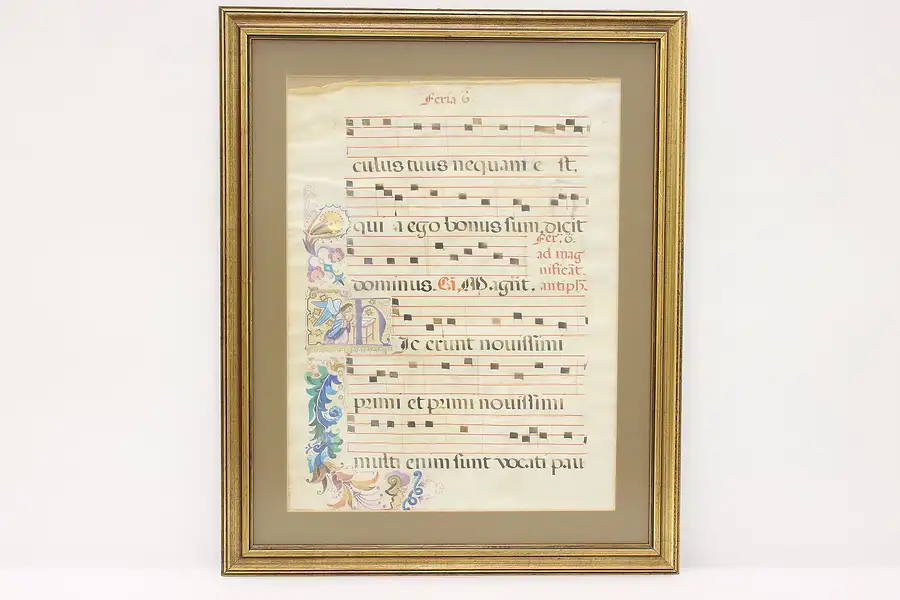 Feria 6
culus tuus nequam e st,
qui a ego bonus sum, dicit
dominus. Cā, Magnt.
Fer. 6.
ad mag
nificat.
antiph.
Ic erunt novissimi
primi et primi novissimi
multi enim sunt vocati pau